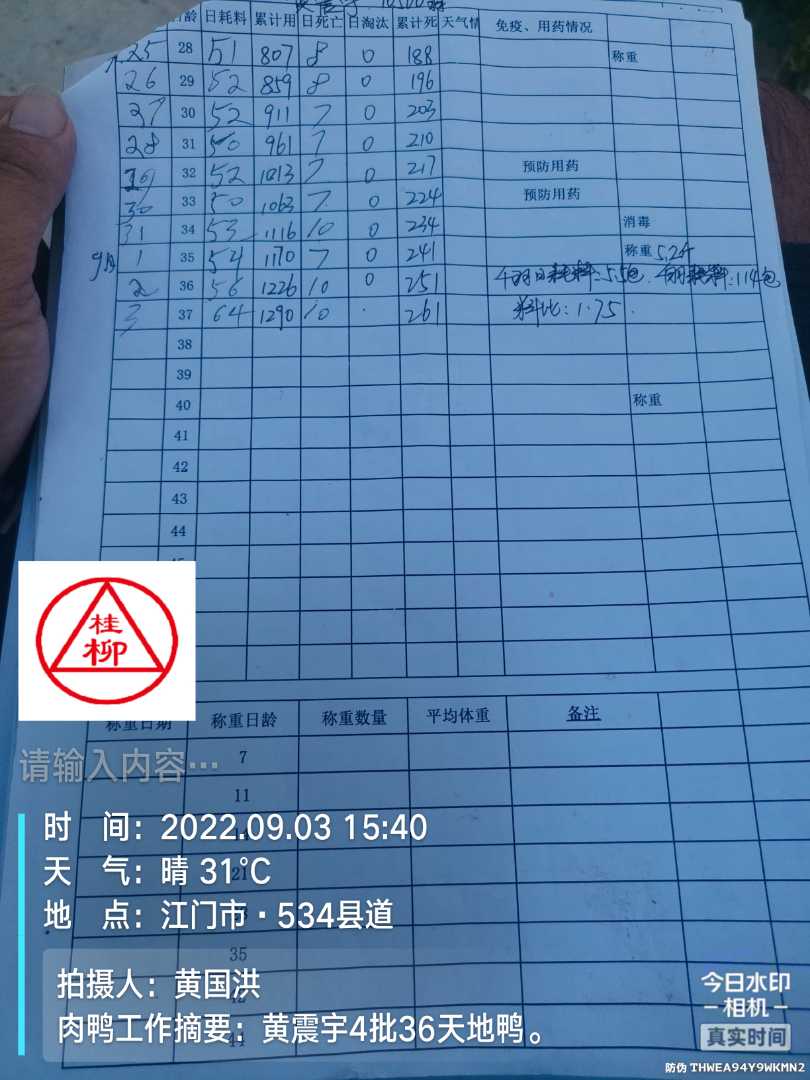 日龄 日耗料 累计用 日死亡 日淘汰 累计死 天气情 免疫、用药情况
25 28 51 807 8 0 188 称重
26 29 52 859 8 0 196
27 30 52 911 7 0 203
28 31 50 961 7 0 210
29 32 52 1013 7 0 217 预防用药
30 33 50 1063 7 0 224 预防用药
31 34 53 1116 10 0 234 消毒
9月 1 35 54 1170 7 0 241 称重 5.2斤
2 36 56 1226 10 0 251
3 37 64 1290 10 261 料比:1.75.
38
39
40 称重
41
42
43
44
桂
柳
称重日期 称重日龄 称重数量 平均体重 备注
7
请输入内容…
11
时 间:2022.09.03 15:40
天 气:晴 31℃
21
地 点:江门市·534县道
35
拍摄人:黄国洪
肉鸭工作摘要:黄震宇4批36天地鸭。
今日水印
相机
真实时间
防伪 THWEA94Y9WKMN2